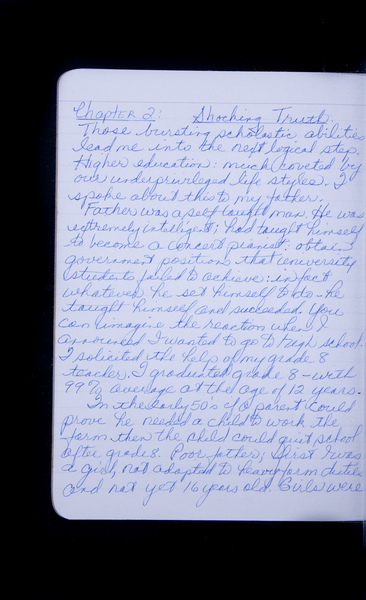 Chapter 2: Shocking Truth.
Those bursting scholastic abilities
lead me into the next logical step.
Higher education: much coveted by
our underprivileged life styles. I
spoke about this to my father.
Father was a self taught man. He was
extremely inteligent; had taught himself
to become a concert pianist; obtain
government positions that university
students failed to achieve: in fact
whatever he set himself to do - he
taught himself and succeeded. You
can imagine the reaction when I
announced I wanted to go to high school.
I solicited the help of my grade 8
teacher. I graduated grade 8 - with
99% average at the age of 12 years.
In the early 50's if a parent could
prove he needed a child to work the
farm then the child could quit school
after grade 8. Poor father; first I was
a girl, not adapted to heavy farm duties
and not yet 16 years old. Girls were